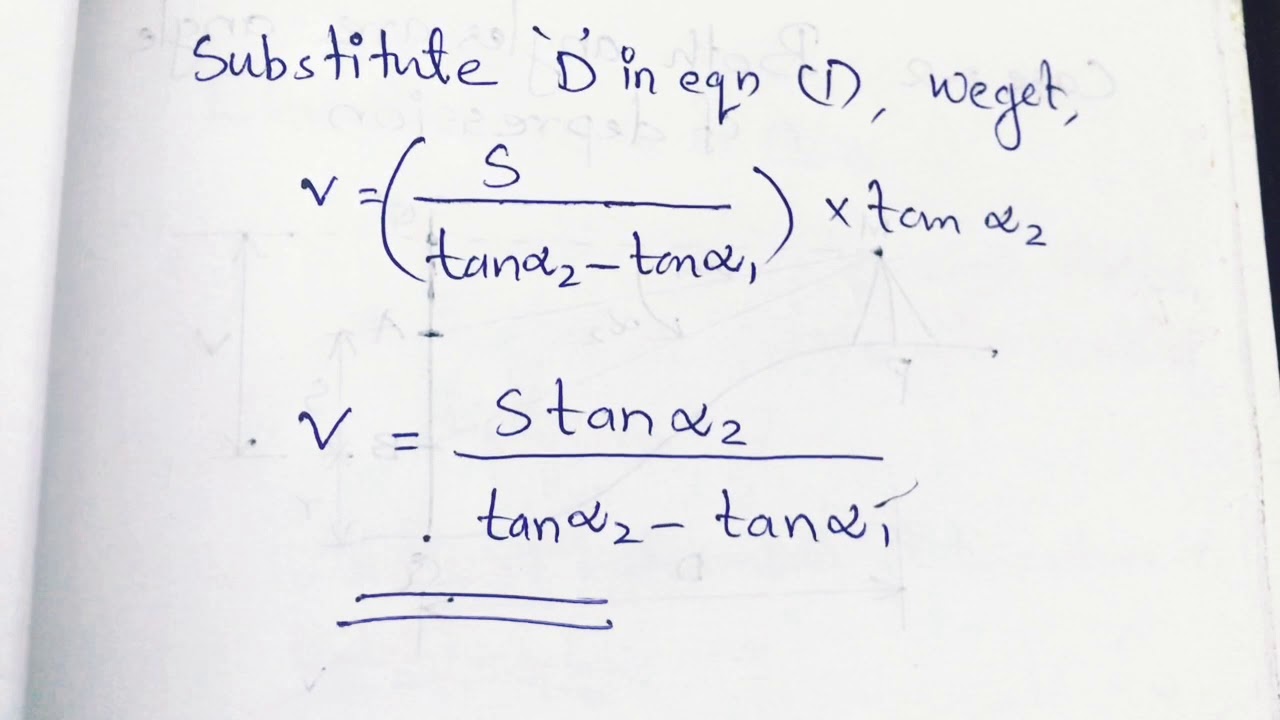 Substitute 'D' in eqn (1), we get,
V = (S / (tanα₂ − tanα₁)) × tan α₂
V = S tan α₂ / (tanα₂ − tanα₁)